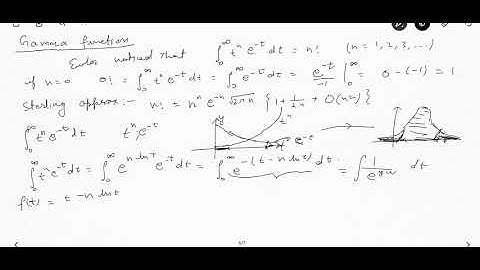 Gamma function
Euler noticed that ∫₀^∞ tⁿ e^-t dt = n! (n = 1, 2, 3, ...)
if n=0 0! = ∫₀^∞ tⁿ e^-t dt = ∫₀^∞ e^-t dt = e^-t/-1 |₀^∞ = 0-(-1) = 1
Sterling approx:- n! = nⁿ e^-n √2πn {1+ 1/12n + O(n²)}
∫₀^∞ tⁿ e^-t dt tⁿ e^-t tⁿ e^-t
∫₀^∞ tⁿ e^-t dt = ∫₀^∞ e^(n ln t) e^-t dt = ∫₀^∞ e^-(t - n ln t) dt = ∫ dt
f(t) = t - n ln t